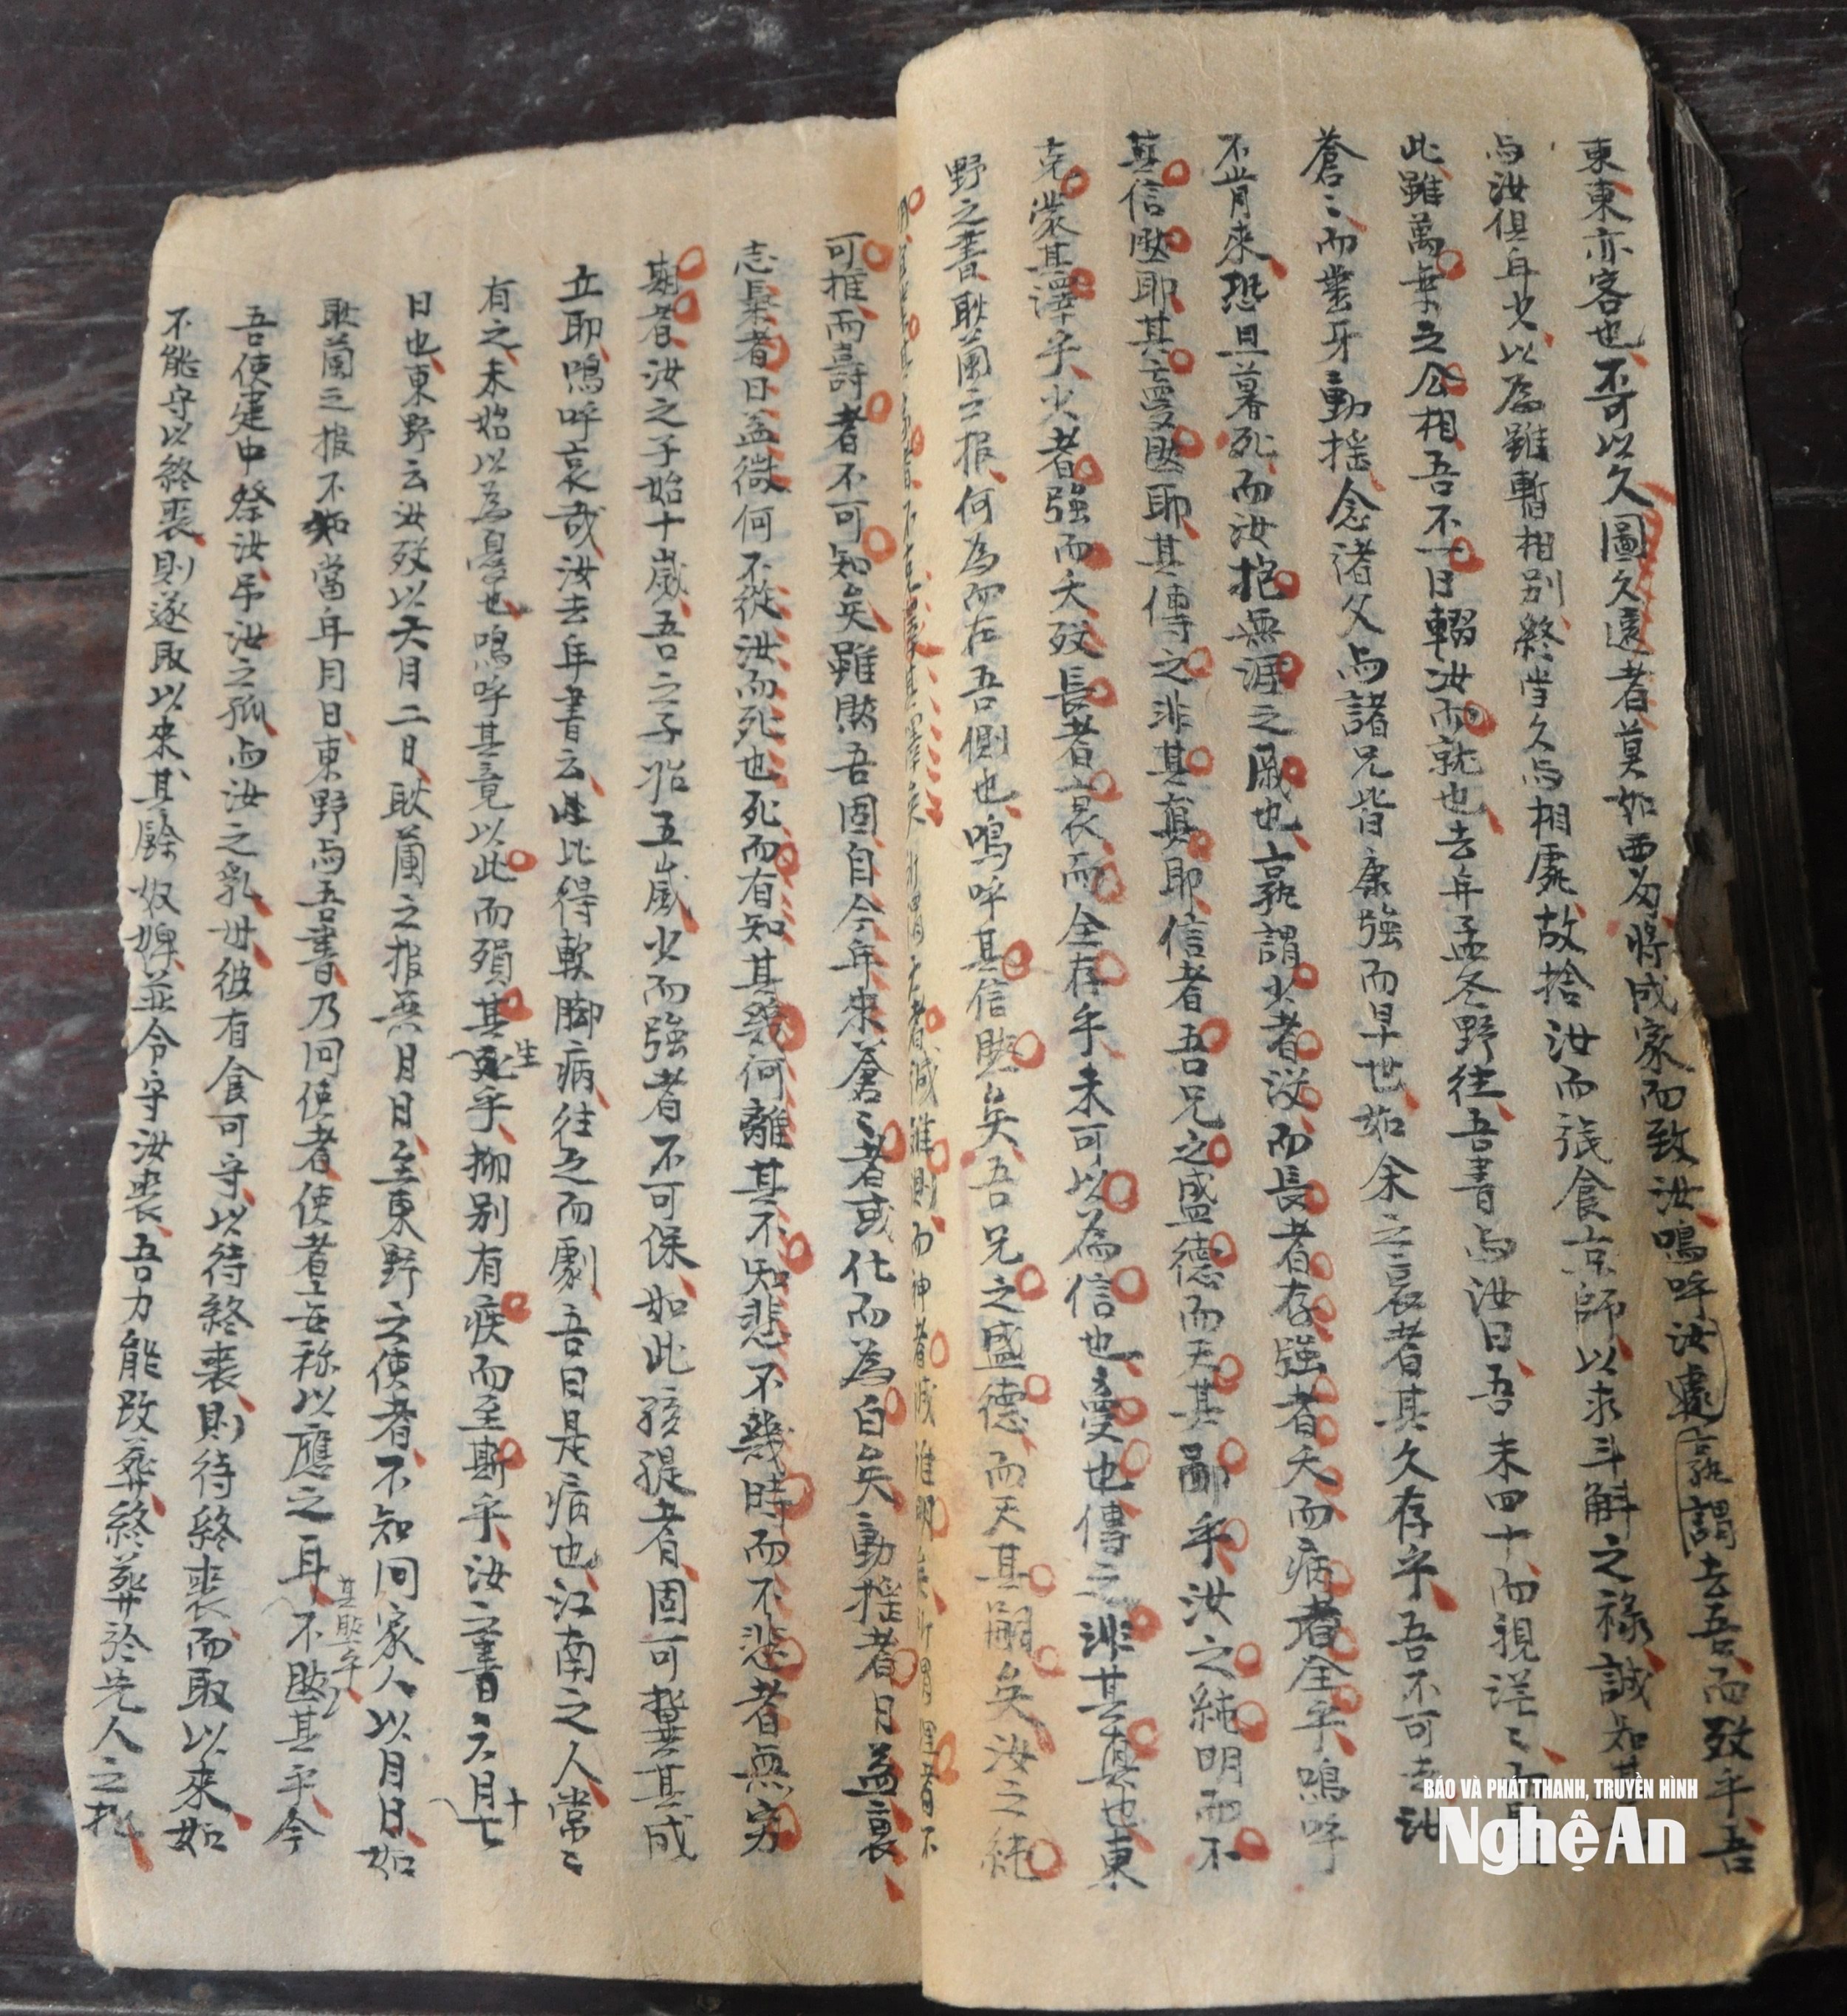 東東亦客也不可以久圖久遠者莫如西為將成家而致汝嗚呼汝遽孰謂去吾而歿乎吾
与汝俱年少以為雖暫相別終当久与相處故捨汝而旅食京師以求斗斛之祿誠知其
此雖萬乘之公相吾不一日輟汝而就也去年孟冬野往吾書与汝曰吾未四十而視茫〻
蒼〻而齒牙動搖念諸父与諸兄皆康強而早世如余之衰者其久存乎吾不可去汝
不肯來恐旦暮死而汝抱無涯之戚也孰謂少者歿而長者存強者夭而病者全乎嗚呼
其信然耶其夢然耶其傳之非其真耶信者吾兄之盛德而夭其嗣乎汝之純明而不
克蒙其澤乎少者強而夭歿長者衰而全存乎未可以為信也夢也傳之非其真也東
野之書耿蘭之报何為而在吾側也嗚呼其信然矣吾兄之盛德而夭其嗣矣汝之純
可推而壽者不可知矣雖然吾固自今年來蒼〻者或化而為白矣動搖者日益衰
志氣者日益微何不從汝而死也死而有知其幾何離其不知悲不幾時而不悲者無穷
期者汝之子始十歲吾之子始五歲少而強者不可保如此孩提者固可冀其成
立耶嗚呼哀哉汝去年書云比得軟脚病往之而劇吾曰是病也江南之人常〻
有之未始以為憂也嗚呼其竟以此而殞其生乎抑別有疾而至斯乎汝之書曰六月十七
日也東野云汝歿以六月二日耿蘭之报無月日至東野之使者不知问家人以月日如
耿蘭之报不知當年月日東野与吾書乃问使者使者妄称以應之耳其然乎不然其乎今
吾使建中祭汝吊汝之孤与汝之乳母彼有食可守以待終喪則待終喪而取以來如
不能守以終喪則遂取以來其餘奴婢並令守汝喪吾力能改葬終葬於先人之
BÁO VÀ PHÁT THANH, TRUYỀN HÌNH
Nghệ An